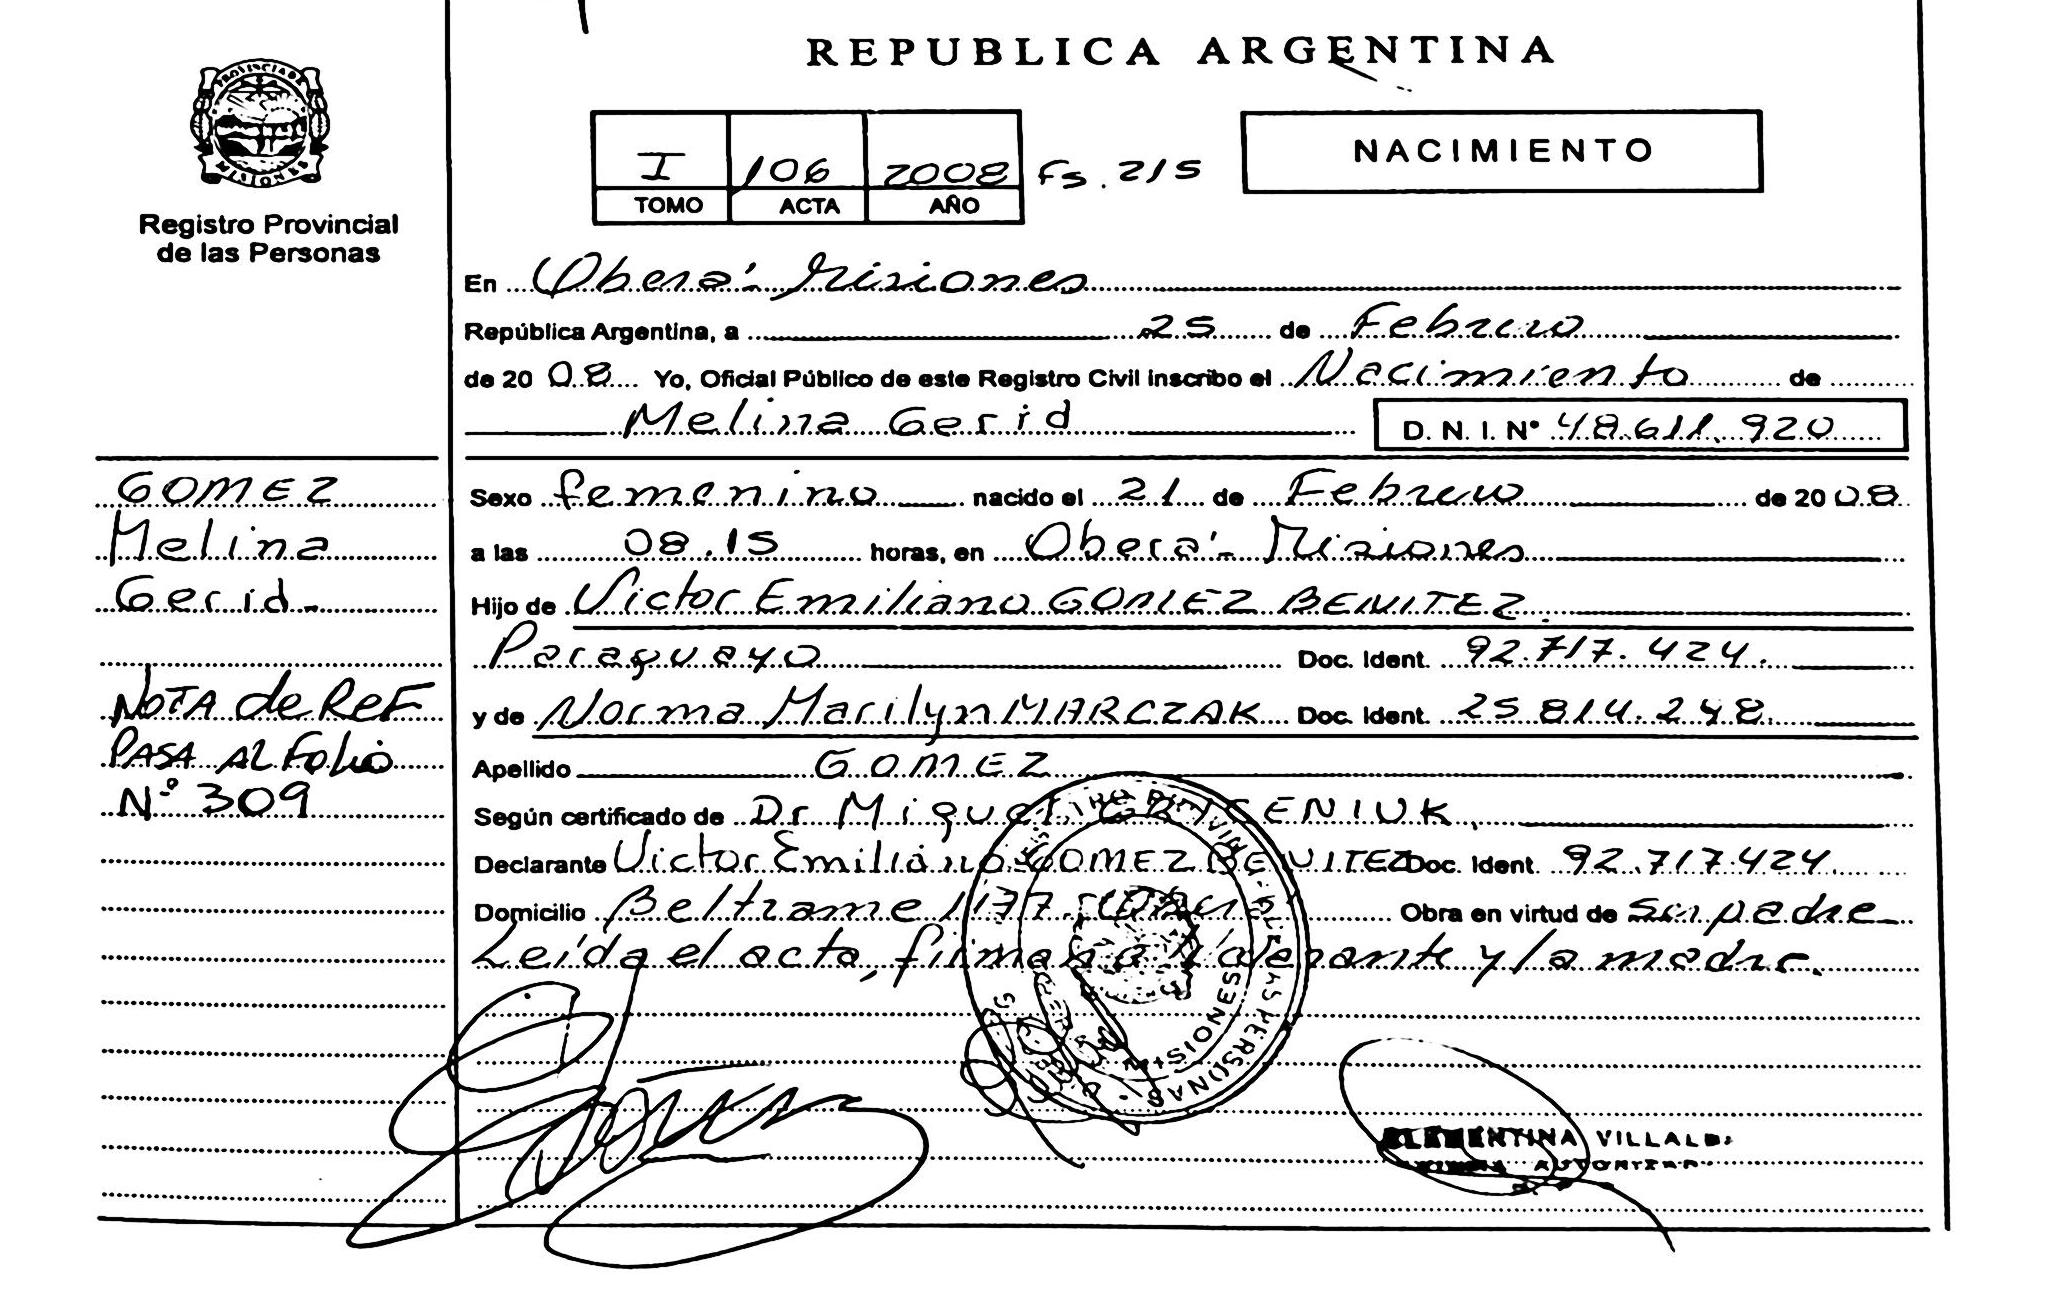 REPUBLICA ARGENTINA
PROVINCIA DE
MISIONES
Registro Provincial
de las Personas
I 106 2008 Fs. 215
TOMO ACTA AÑO
NACIMIENTO
En Oberá - Misiones
República Argentina, a 25 de Febrero
de 20 08 Yo, Oficial Público de este Registro Civil inscribo el Nacimiento de
Melina Gerid D. N. I. Nº 48.611.920
GOMEZ
Melina
Gerid -
NOTA de REF
PASA AL Folio
Nº 309
Sexo femenino nacido el 21 de Febrero de 20 08
a las 08.15 horas, en Oberá - Misiones
Hijo de Victor Emiliano GOMEZ BENITEZ
Paraguayo Doc. Ident. 92.717.424.
y de Norma Marilyn MARCZAK Doc. Ident. 25.814.248.
Apellido GOMEZ
Según certificado de Dr Miguel
Declarante Victor Emiliano GOMEZ BENITEZ Doc. Ident. 92.717.424.
Domicilio Beltrame 1177 Obra en virtud de ser padre
Leída el acta, firman y la madre.
MISIONES
LAS PERSONAS
CLEMENTINA